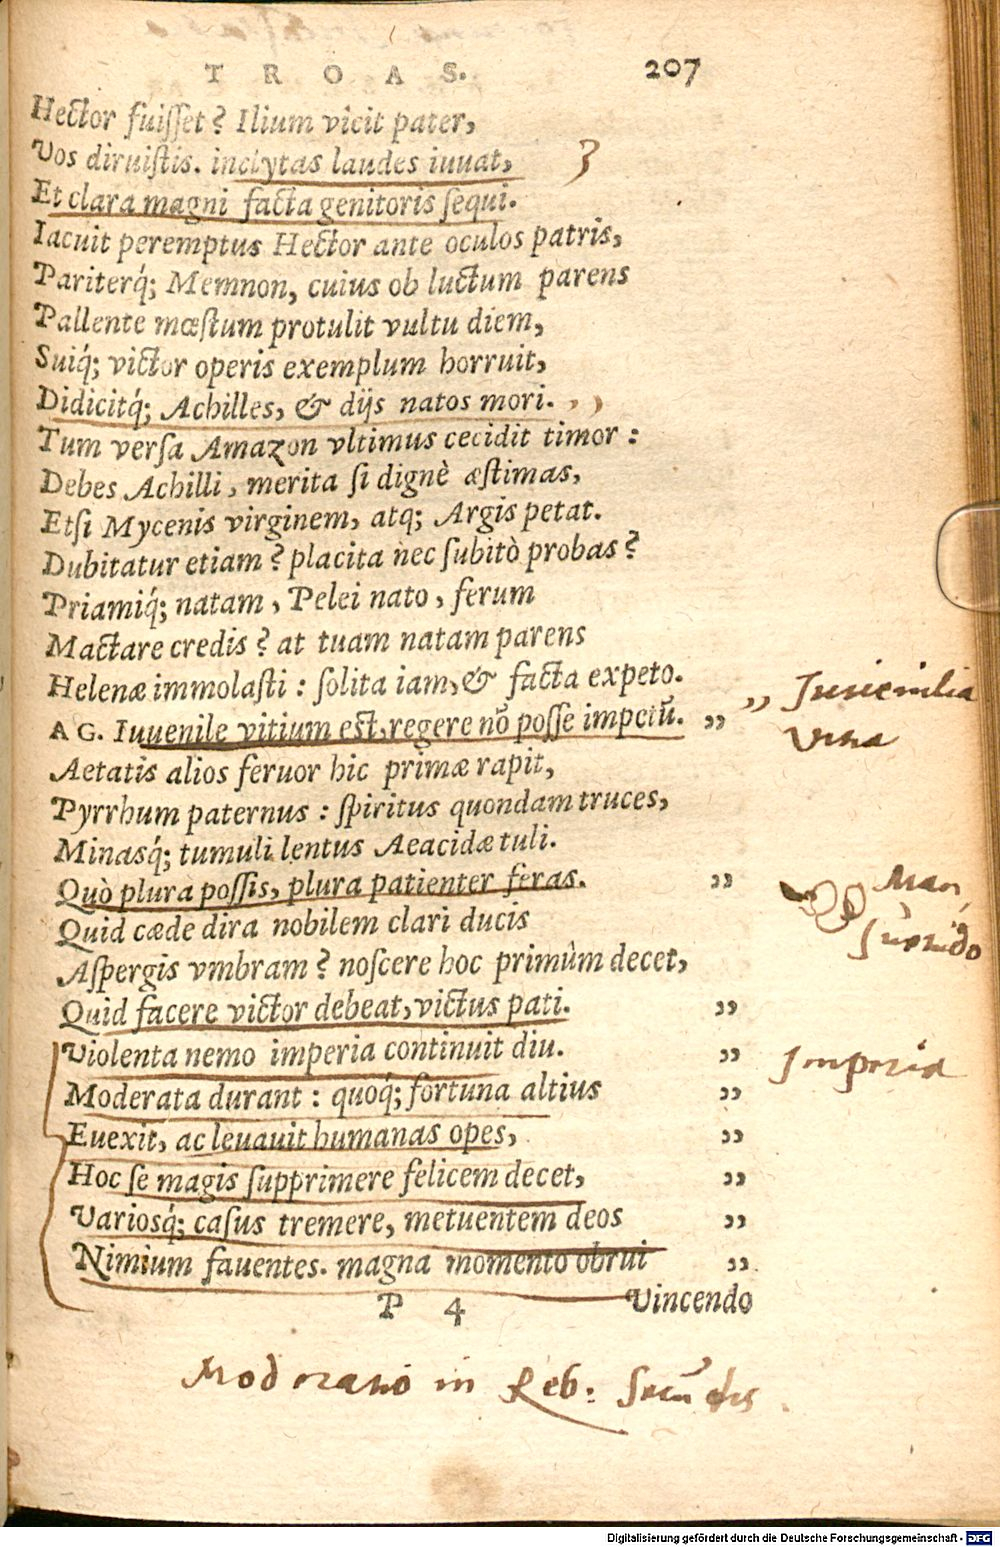 TROAS. 207
Hector fuiſſet? Ilium vicit pater,
Vos diruiſtis. inclytas laudes iuuat, 3
Et clara magni facta genitoris ſequi.
Iacuit peremptus Hector ante oculos patris,
Pariterq́; Memnon, cuius ob luctum parens
Pallente mœſtum protulit vultu diem,
Suiq́; victor operis exemplum horruit,
Didicitq́; Achilles, & dijs natos mori. , ,
Tum verſa Amazon vltimus cecidit timor :
Debes Achilli, merita ſi dignè æſtimas,
Etſi Mycenis virginem, atq; Argis petat.
Dubitatur etiam? placita nec ſubitò probas?
Priamiq́; natam, Pelei nato, ferum
Mactare credis? at tuam natam parens
Helenæ immolaſti : ſolita iam, & facta expeto.
AG. Iuuenile vitium eſt, regere nõ poſſe impetũ. „ „ Juuenilia
vitia
Aetatis alios feruor hic primæ rapit,
Pyrrhum paternus : ſpiritus quondam truces,
Minasq́; tumuli lentus Aeacidæ tuli.
Quò plura poſſis, plura patienter feras. „ Man
ſuetudo
Quid cæde dira nobilem clari ducis
Aſpergis vmbram? noſcere hoc primùm decet,
Quid facere victor debeat, victus pati. „
Violenta nemo imperia continuit diu. „ Imperia
Moderata durant : quoq́; fortuna altius „
Euexit, ac leuauit humanas opes, „
Hoc ſe magis ſupprimere felicem decet, „
Variosq́; caſus tremere, metuentem deos „
Nimium fauentes. magna momento obrui „
P 4 Vincendo
Moderatio in Reb: Secũdis
Digitalisierung gefördert durch die Deutsche Forschungsgemeinschaft - DFG